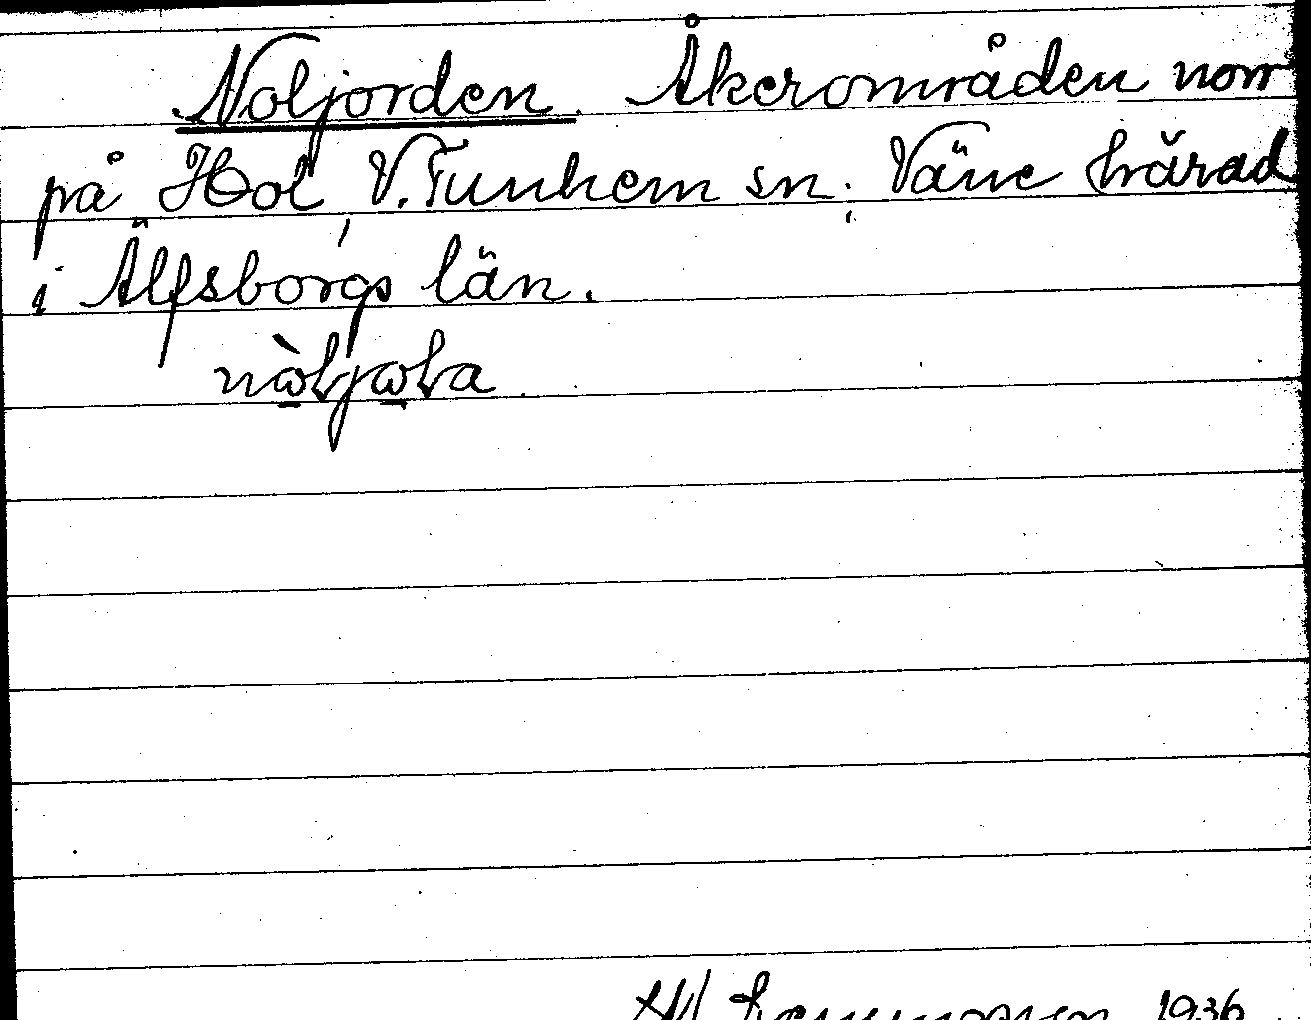 Noljorden. Åkerområden norr
på Hol, V. Tunhem sn. Väne härad
i Älfsborgs län.
1936